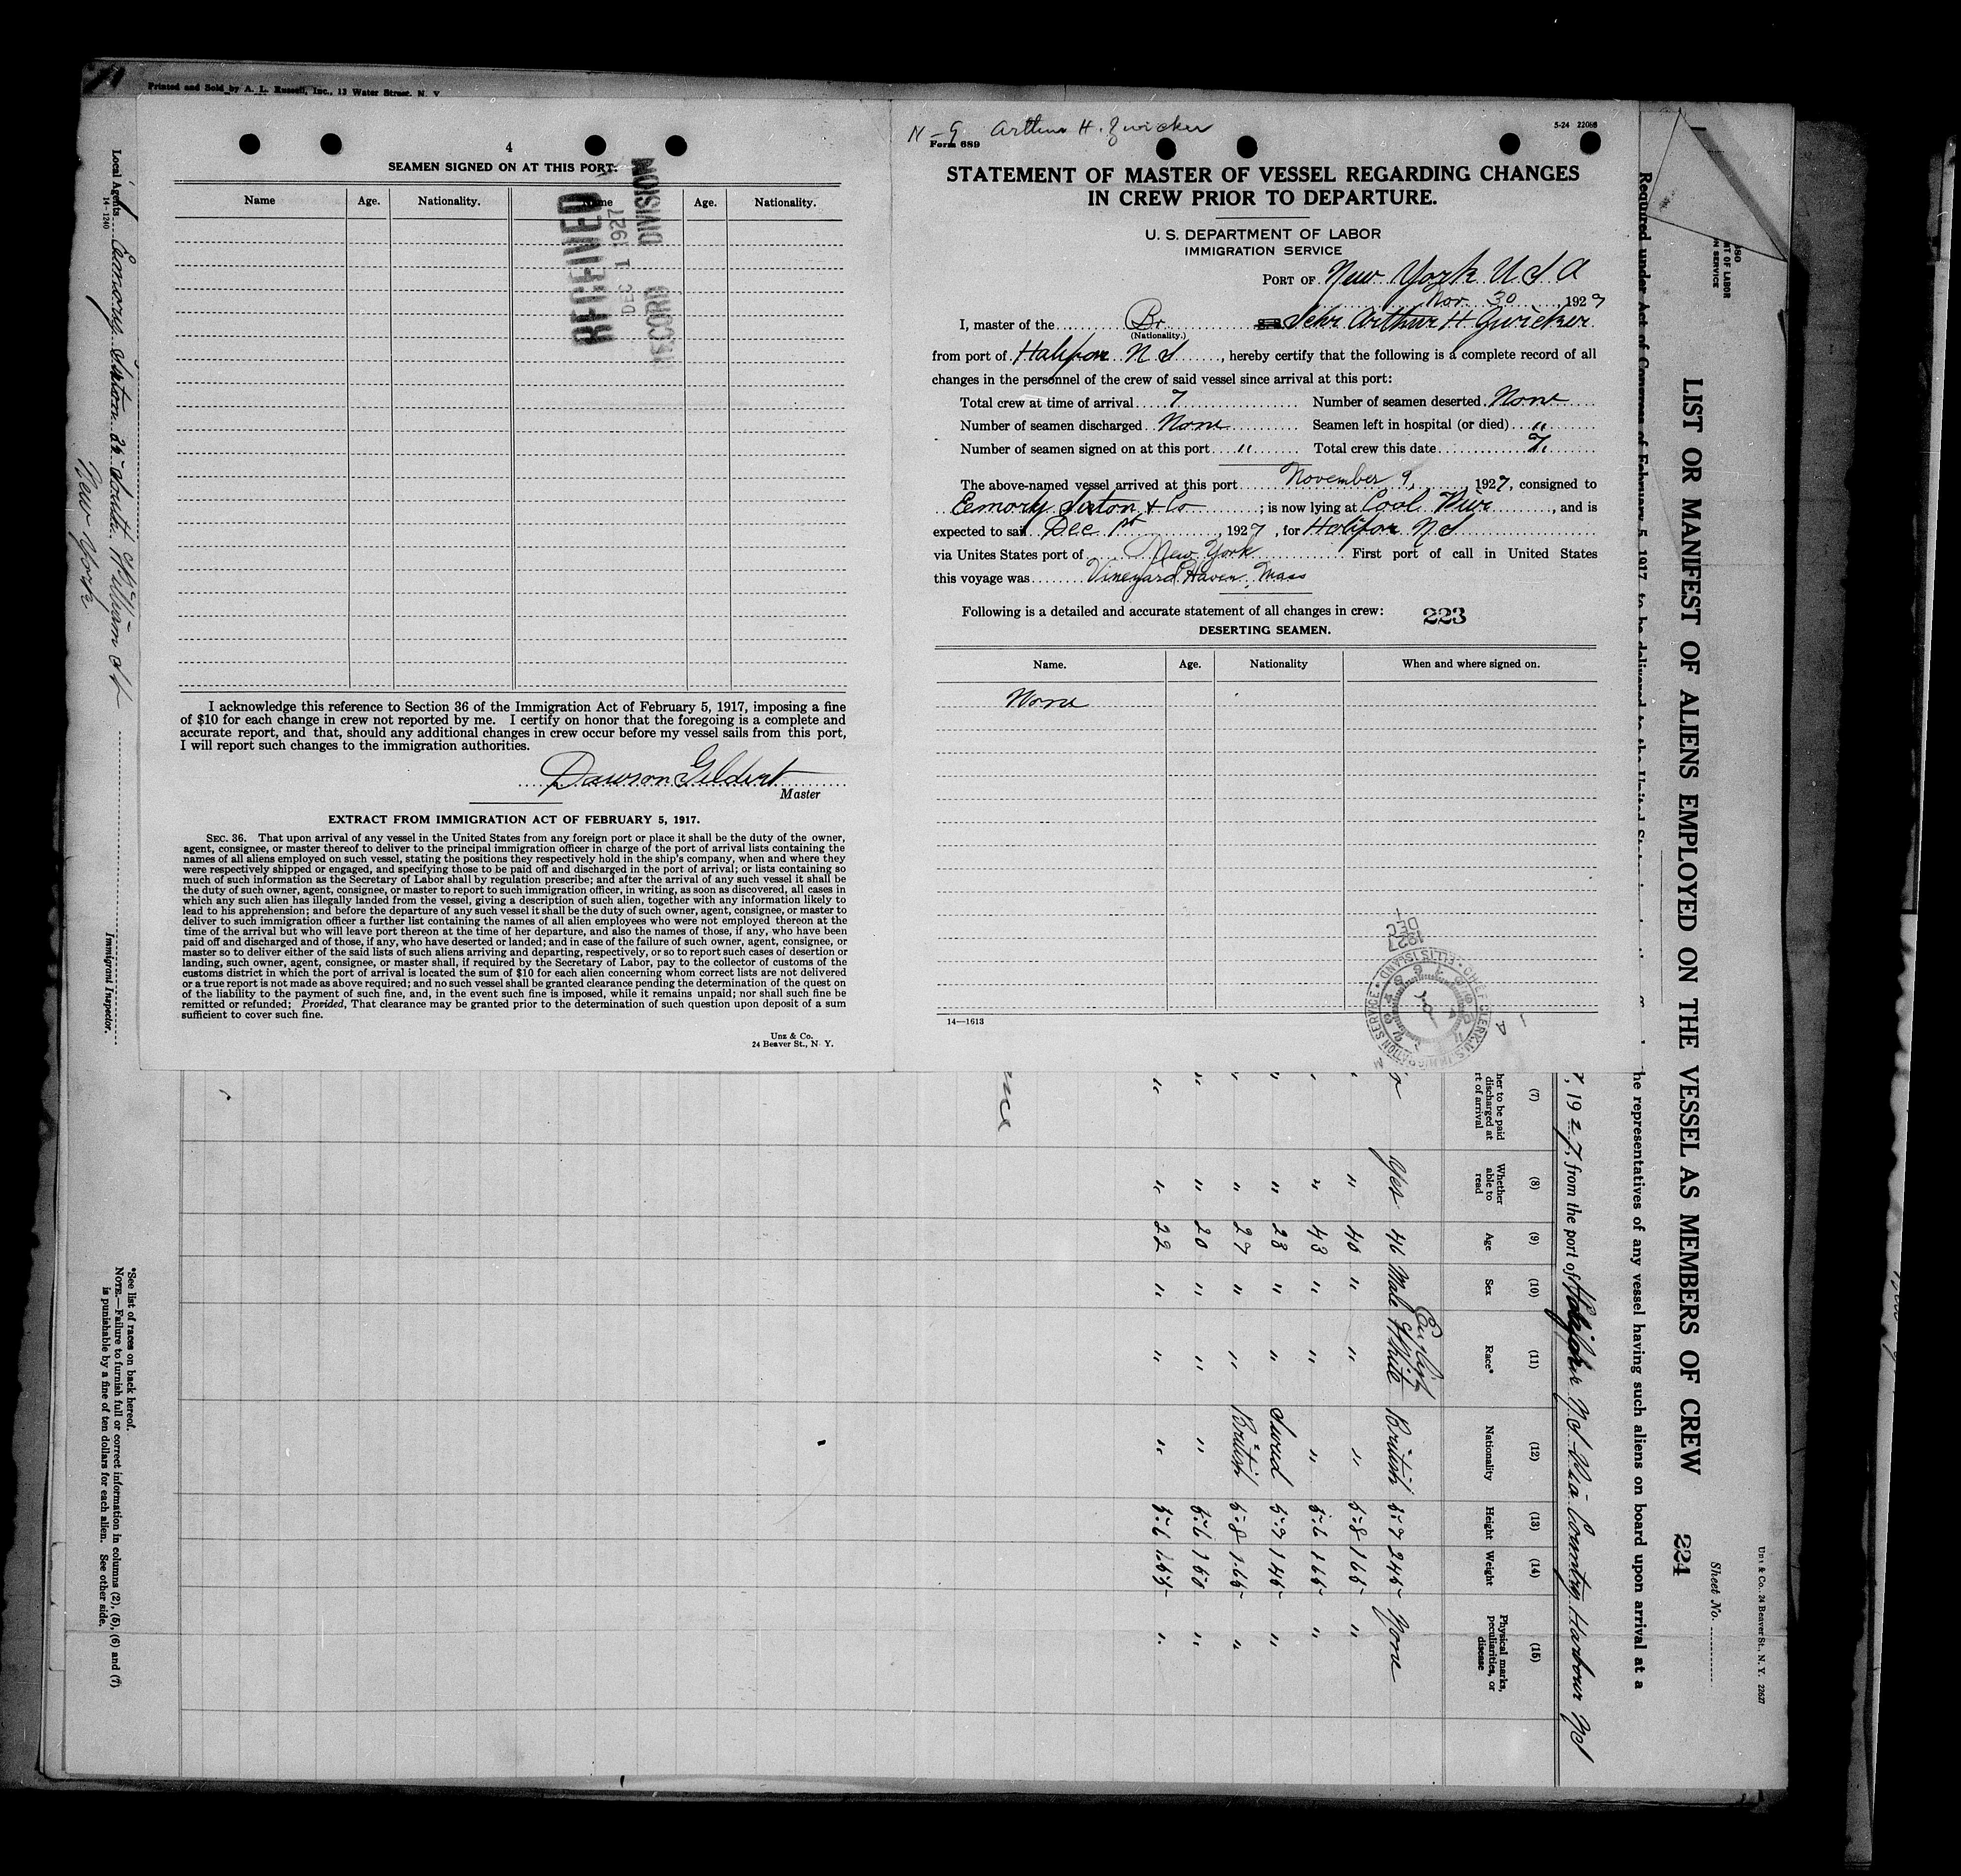 Printed and Sold by A. L. Russell, Inc., 13 Water Street, N. Y
4
SEAMEN SIGNED ON AT THIS PORT.
Name Age. Nationality. Name Age. Nationality.
RECEIVED
DEC 1 1927
RECORD DIVISION
I acknowledge this reference to Section 36 of the Immigration Act of February 5, 1917, imposing a fine
of $10 for each change in crew not reported by me. I certify on honor that the foregoing is a complete and
accurate report, and that, should any additional changes in crew occur before my vessel sails from this port,
I will report such changes to the immigration authorities.
Dawson Geldert
Master
EXTRACT FROM IMMIGRATION ACT OF FEBRUARY 5, 1917.
SEC. 36. That upon arrival of any vessel in the United States from any foreign port or place it shall be the duty of the owner,
agent, consignee, or master thereof to deliver to the principal immigration officer in charge of the port of arrival lists containing the
names of all aliens employed on such vessel, stating the positions they respectively hold in the ship's company, when and where they
were respectively shipped or engaged, and specifying those to be paid off and discharged in the port of arrival; or lists containing so
much of such information as the Secretary of Labor shall by regulation prescribe; and after the arrival of any such vessel it shall be
the duty of such owner, agent, consignee, or master to report to such immigration officer, in writing, as soon as discovered, all cases in
which any such alien has illegally landed from the vessel, giving a description of such alien, together with any information likely to
lead to his apprehension; and before the departure of any such vessel it shall be the duty of such owner, agent, consignee, or master to
deliver to such immigration officer a further list containing the names of all alien employees who were not employed thereon at the
time of the arrival but who will leave port thereon at the time of her departure, and also the names of those, if any, who have been
paid off and discharged and of those, if any, who have deserted or landed; and in case of the failure of such owner, agent, consignee, or
master so to deliver either of the said lists of such aliens arriving and departing, respectively, or so to report such cases of desertion or
landing, such owner, agent, consignee, or master shall, if required by the Secretary of Labor, pay to the collector of customs of the
customs district in which the port of arrival is located the sum of $10 for each alien concerning whom correct lists are not delivered
or a true report is not made as above required; and no such vessel shall be granted clearance pending the determination of the quest on
of the liability to the payment of such fine, and, in the event such fine is imposed, while it remains unpaid; nor shall such fine be
remitted or refunded; Provided, That clearance may be granted prior to the determination of such question upon deposit of a sum
sufficient to cover such fine.
Unz & Co.
24 Beaver St., N. Y.
N-9 Arthur H. Zwicker
Form 689
5-24 22086
STATEMENT OF MASTER OF VESSEL REGARDING CHANGES
IN CREW PRIOR TO DEPARTURE.
U. S. DEPARTMENT OF LABOR
IMMIGRATION SERVICE
PORT OF New York U S A
Nov. 30, 1927
I, master of the Br. Schr Arthur H Zwicker
(Nationality.)
from port of Halifax N S, hereby certify that the following is a complete record of all
changes in the personnel of the crew of said vessel since arrival at this port:
Total crew at time of arrival 7 Number of seamen deserted None
Number of seamen discharged None Seamen left in hospital (or died) "
Number of seamen signed on at this port " Total crew this date 7.
The above-named vessel arrived at this port November 9, 1927, consigned to
Eemory Sexton & Co; is now lying at Coal Pier, and is
expected to sail Dec 1st, 1927, for Halifax N S
via Unites States port of New York First port of call in United States
this voyage was Vineyard Haven, Mass
Following is a detailed and accurate statement of all changes in crew: 223
DESERTING SEAMEN.
Name. Age. Nationality When and where signed on.
None
1927 DEC 1
CHIEF CLERK, U.S. IMMIGRATION SERVICE • ELLIS ISLAND
14—1613
Unz & Co., 24 Beaver St., N. Y. 22627
Sheet No.
LIST OR MANIFEST OF ALIENS EMPLOYED ON THE VESSEL AS MEMBERS OF CREW 224
Required under Act of Congress of February 5, 1917, to be delivered to the United
he representatives of any vessel having such aliens on board upon arrival at a
7, 1927, from the port of Halifax N.S. Via Country Harbour NS
(7) (8) (9) (10) (11) (12) (13) (14) (15)
her to be paid discharged at rt of arrival Whether able to read Age Sex Race* Nationality Height Weight Physical marks, peculiarities, or disease
English
Yes 46 Male White British 5-7 245 None
" " 40 " " " 5-8 165 "
" " 43 " " " 5-6 165 "
" " 23 " " Swed 5-7 145 "
" " 27 " " British 5-8 165 "
" " 20 " " " 5-6 150 "
" " 22 " " " 5-6 155 "
Local Agents Eemory Sexton 26 South William St
14-1240
New York
Immigrant Inspector.
*See list of races on back hereof.
NOTE.—Failure to furnish full or correct information in columns (2), (5), (6) and (7)
is punishable by a fine of ten dollars for each alien. See other side.